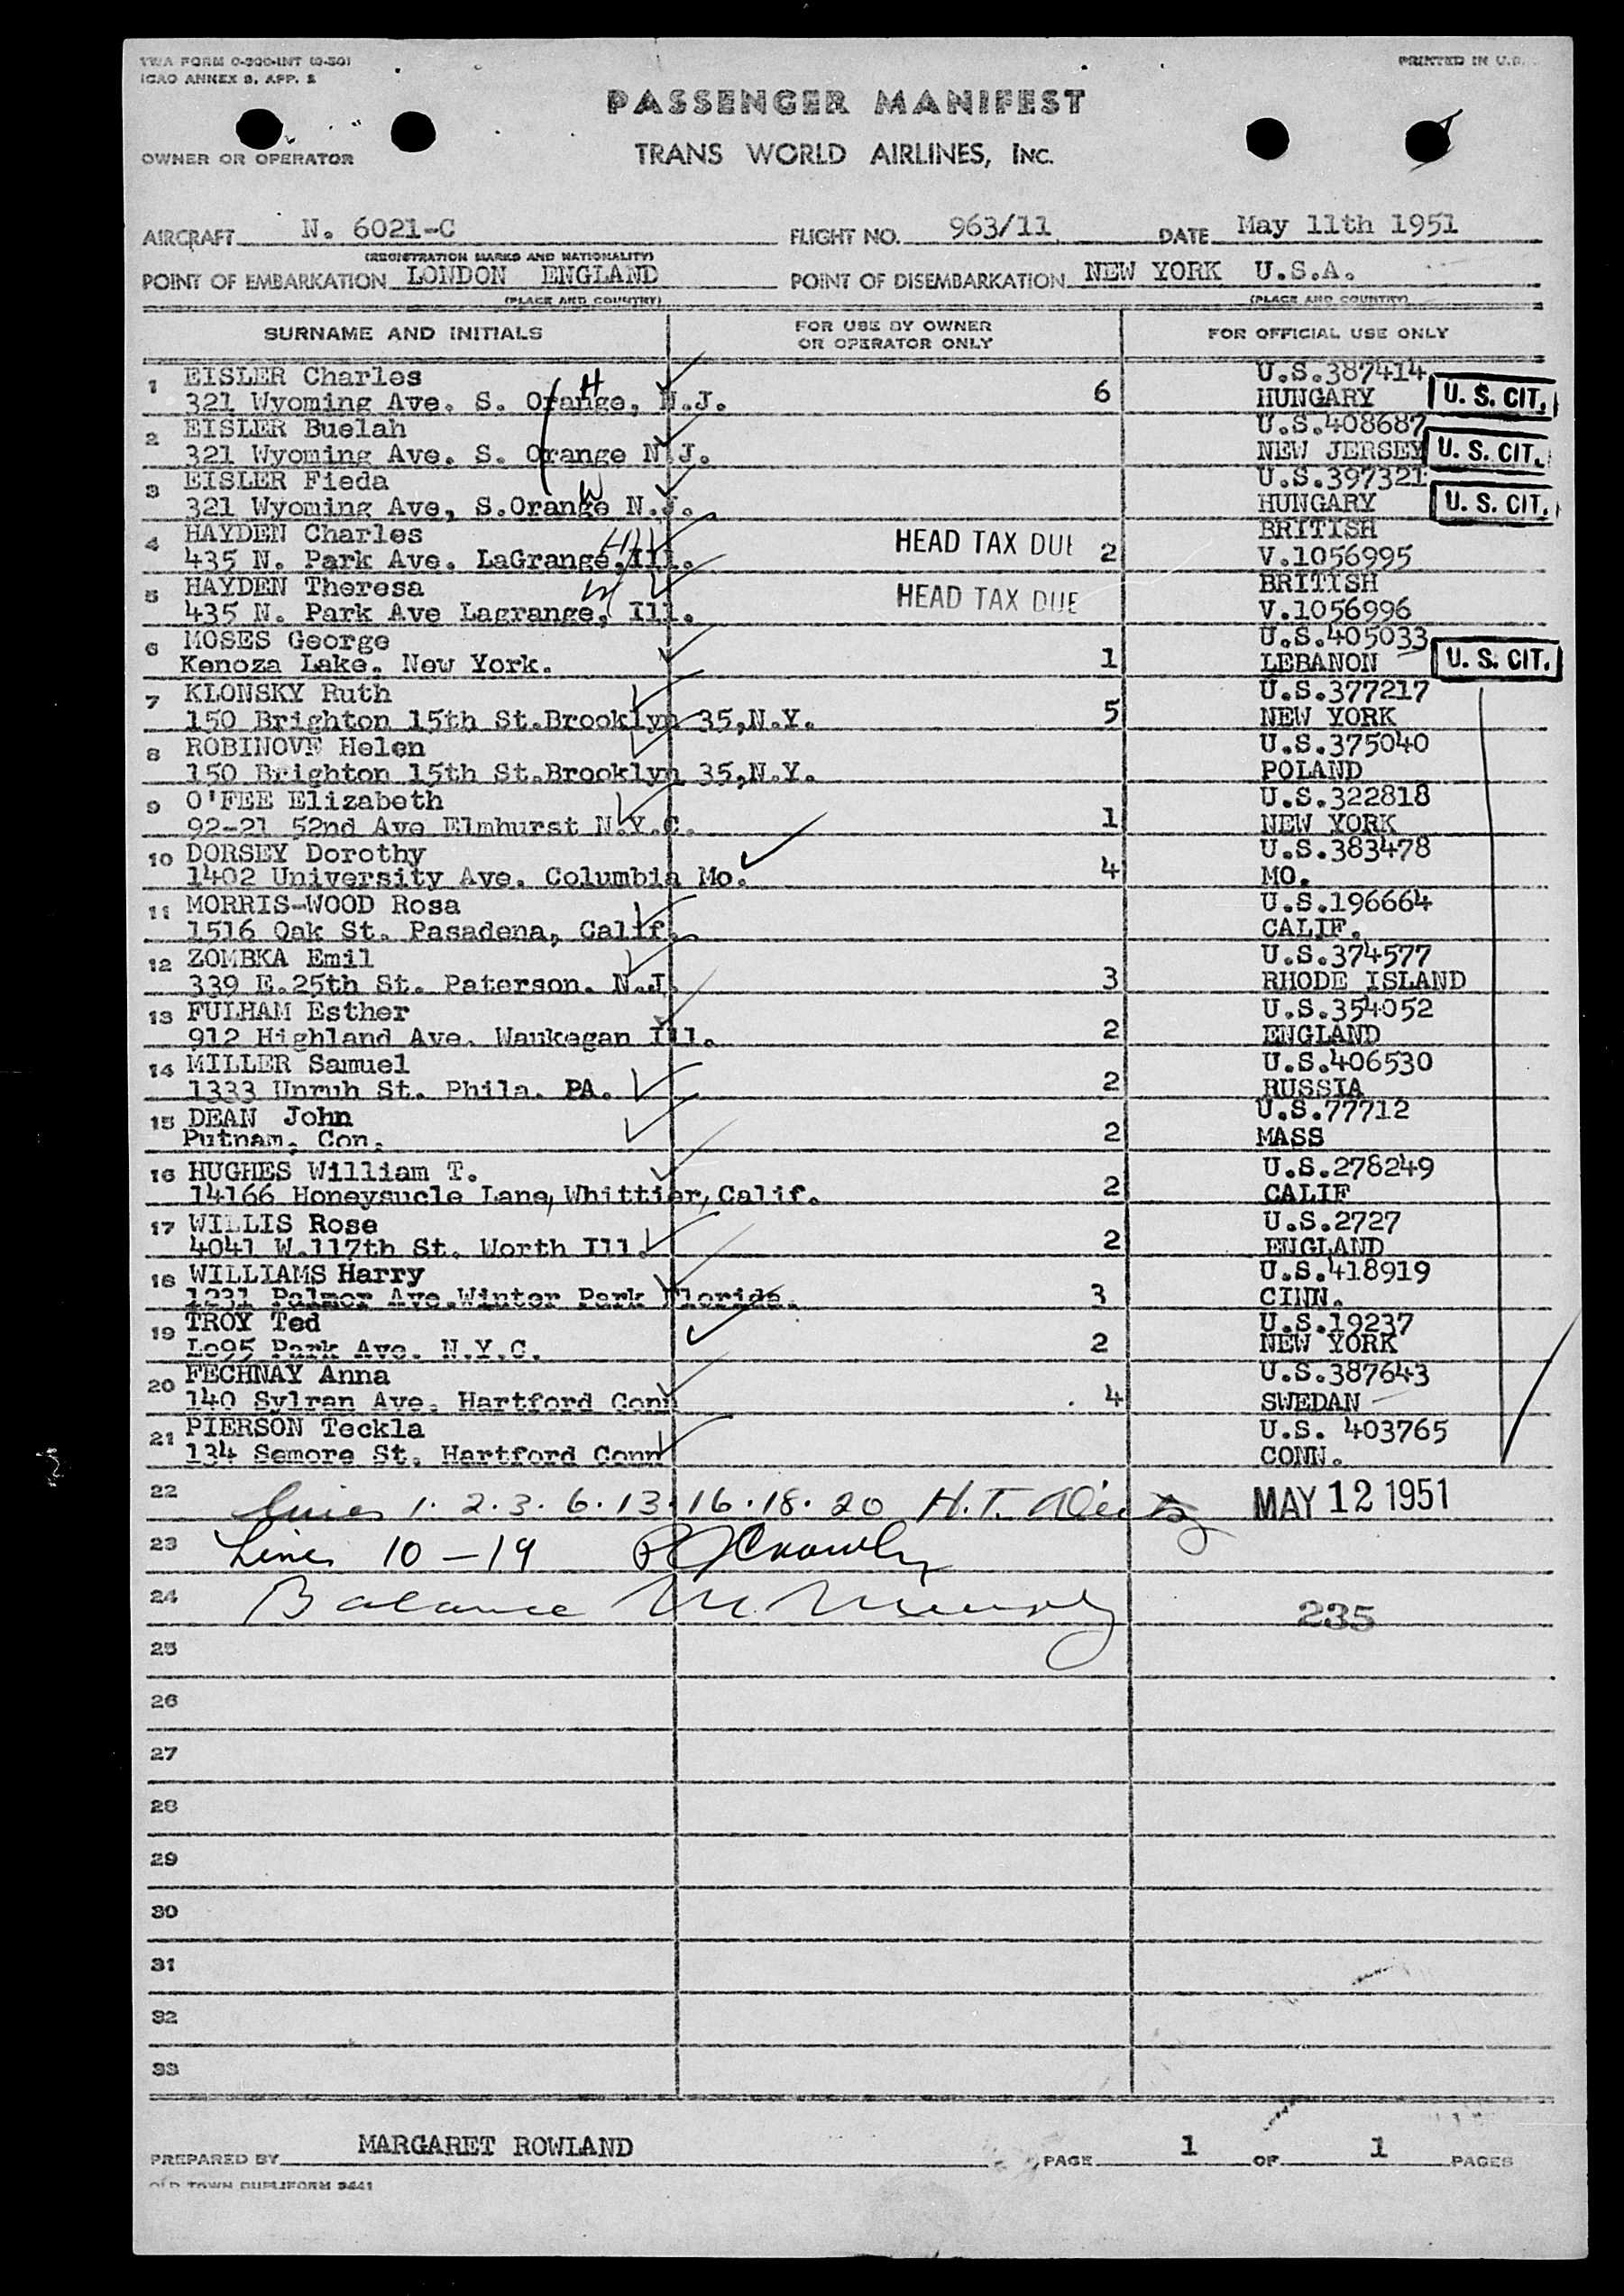 TWA FORM O-300-INT (0-50)
ICAO ANNEX 9, APP. 2
PRINTED IN U.S.
PASSENGER MANIFEST
OWNER OR OPERATOR
TRANS WORLD AIRLINES, INC.
AIRCRAFT N. 6021-C FLIGHT NO. 963/11 DATE May 11th 1951
(REGISTRATION MARKS AND NATIONALITY)
POINT OF EMBARKATION LONDON ENGLAND POINT OF DISEMBARKATION NEW YORK U.S.A.
(PLACE AND COUNTRY) (PLACE AND COUNTRY)
SURNAME AND INITIALS FOR USE BY OWNER OR OPERATOR ONLY FOR OFFICIAL USE ONLY
1 EISLER Charles U.S.387414
321 Wyoming Ave. S. Orange, N.J. H 6 HUNGARY U. S. CIT.
2 EISLER Buelah U.S.408687
321 Wyoming Ave. S. Orange N.J. NEW JERSEY U. S. CIT.
3 EISLER Fieda U.S.397321
321 Wyoming Ave, S.Orange N.J. W HUNGARY U. S. CIT.
4 HAYDEN Charles HEAD TAX DUE BRITISH
435 N. Park Ave. LaGrange,Ill. H 2 V.1056995
5 HAYDEN Theresa W HEAD TAX DUE BRITISH
435 N. Park Ave Lagrange, Ill. V.1056996
6 MOSES George U.S.405033
Kenoza Lake. New York. 1 LEBANON U. S. CIT.
7 KLONSKY Ruth U.S.377217
150 Brighton 15th St.Brooklyn 35,N.Y. 5 NEW YORK
8 ROBINOVE Helen U.S.375040
150 Brighton 15th St.Brooklyn 35,N.Y. POLAND
9 O'FEE Elizabeth U.S.322818
92-21 52nd Ave Elmhurst N.Y.C. 1 NEW YORK
10 DORSEY Dorothy U.S.383478
1402 University Ave. Columbia Mo. 4 MO.
11 MORRIS-WOOD Rosa U.S.196664
1516 Oak St. Pasadena, Calif. CALIF.
12 ZOMBKA Emil U.S.374577
339 E.25th St. Paterson. N.J. 3 RHODE ISLAND
13 FULHAM Esther U.S.354052
912 Highland Ave. Waukegan Ill. 2 ENGLAND
14 MILLER Samuel U.S.406530
1333 Unruh St. Phila. PA. 2 RUSSIA
15 DEAN John U.S.77712
Putnam, Con. 2 MASS
16 HUGHES William T. U.S.278249
14166 Honeysucle Lane, Whittier, Calif. 2 CALIF
17 WILLIS Rose U.S.2727
4041 W.117th St. Worth Ill. 2 ENGLAND
18 WILLIAMS Harry U.S.418919
1231 Palmer Ave.Winter Park Florida. 3 CINN.
19 TROY Ted U.S.19237
Lo95 Park Ave. N.Y.C. 2 NEW YORK
20 FECHNAY Anna U.S.387643
140 Sylran Ave. Hartford Conn 4 SWEDAN
21 PIERSON Teckla U.S. 403765
134 Semore St. Hartford Conn CONN.
22 Lines 1. 2. 3. 6. 13. 16. 18. 20 H.T. MAY 12 1951
23 Lines 10 – 19 Crowley
24 Balance 235
25
26
27
28
29
30
31
32
33
PREPARED BY MARGARET ROWLAND PAGE 1 OF 1 PAGES
OLD TOWN DUPLIFORM 9441